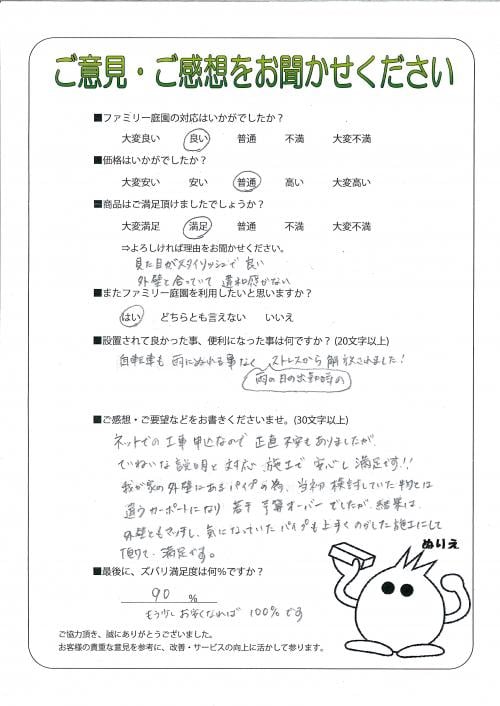 ご意見・ご感想をお聞かせください
■ファミリー庭園の対応はいかがでしたか？
大変良い 良い 普通 不満 大変不満
■価格はいかがでしたか？
大変安い 安い 普通 高い 大変高い
■商品はご満足頂けましたでしょうか？
大変満足 満足 普通 不満 大変不満
⇒よろしければ理由をお聞かせください。
見た目がスタイリッシュで良い
外壁と合っていて違和感がない
■またファミリー庭園を利用したいと思いますか？
はい どちらとも言えない いいえ
■設置されて良かった事、便利になった事は何ですか？(20文字以上)
自転車も雨にぬれる事なく ストレスから解放されました！
雨の日の出勤時の
■ご感想・ご要望などをお書きくださいませ。(30文字以上)
ネットでの工事申込なので正直不安もありましたが、
ていねいな説明と対応、施工で安心し満足です!!
我が家の外壁にあるパイプの為、当初検討していた物とは
違うカーポートになり若干予算オーバーでしたが、結果は、
外壁ともマッチし、気になっていたパイプも上手くのがした施工にして
頂けて、満足です。
ぬりえ
■最後に、ズバリ満足度は何％ですか？
90 ％
もう少しお安くなれば100%です
ご協力頂き、誠にありがとうございました。
お客様の貴重な意見を参考に、改善・サービスの向上に活かして参ります。